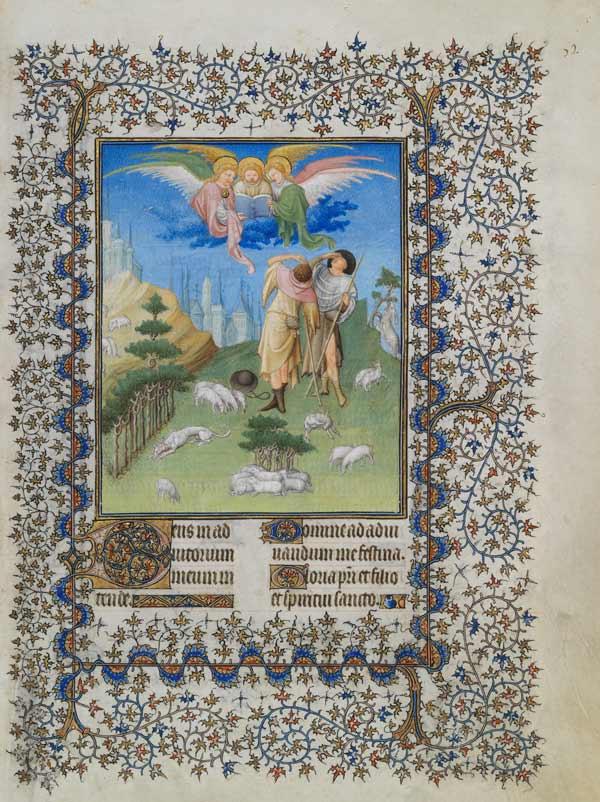 52.
Deus in ad
iutorium
meum in
tende.
Domine ad adiu
uandum me festina.
Gloria pr̄i et filio
et spiritui sancto.